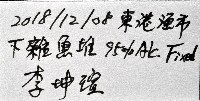 2018/12/08 東港漁市
下雜魚堆 95% Alc. Fixed
李坤瑄